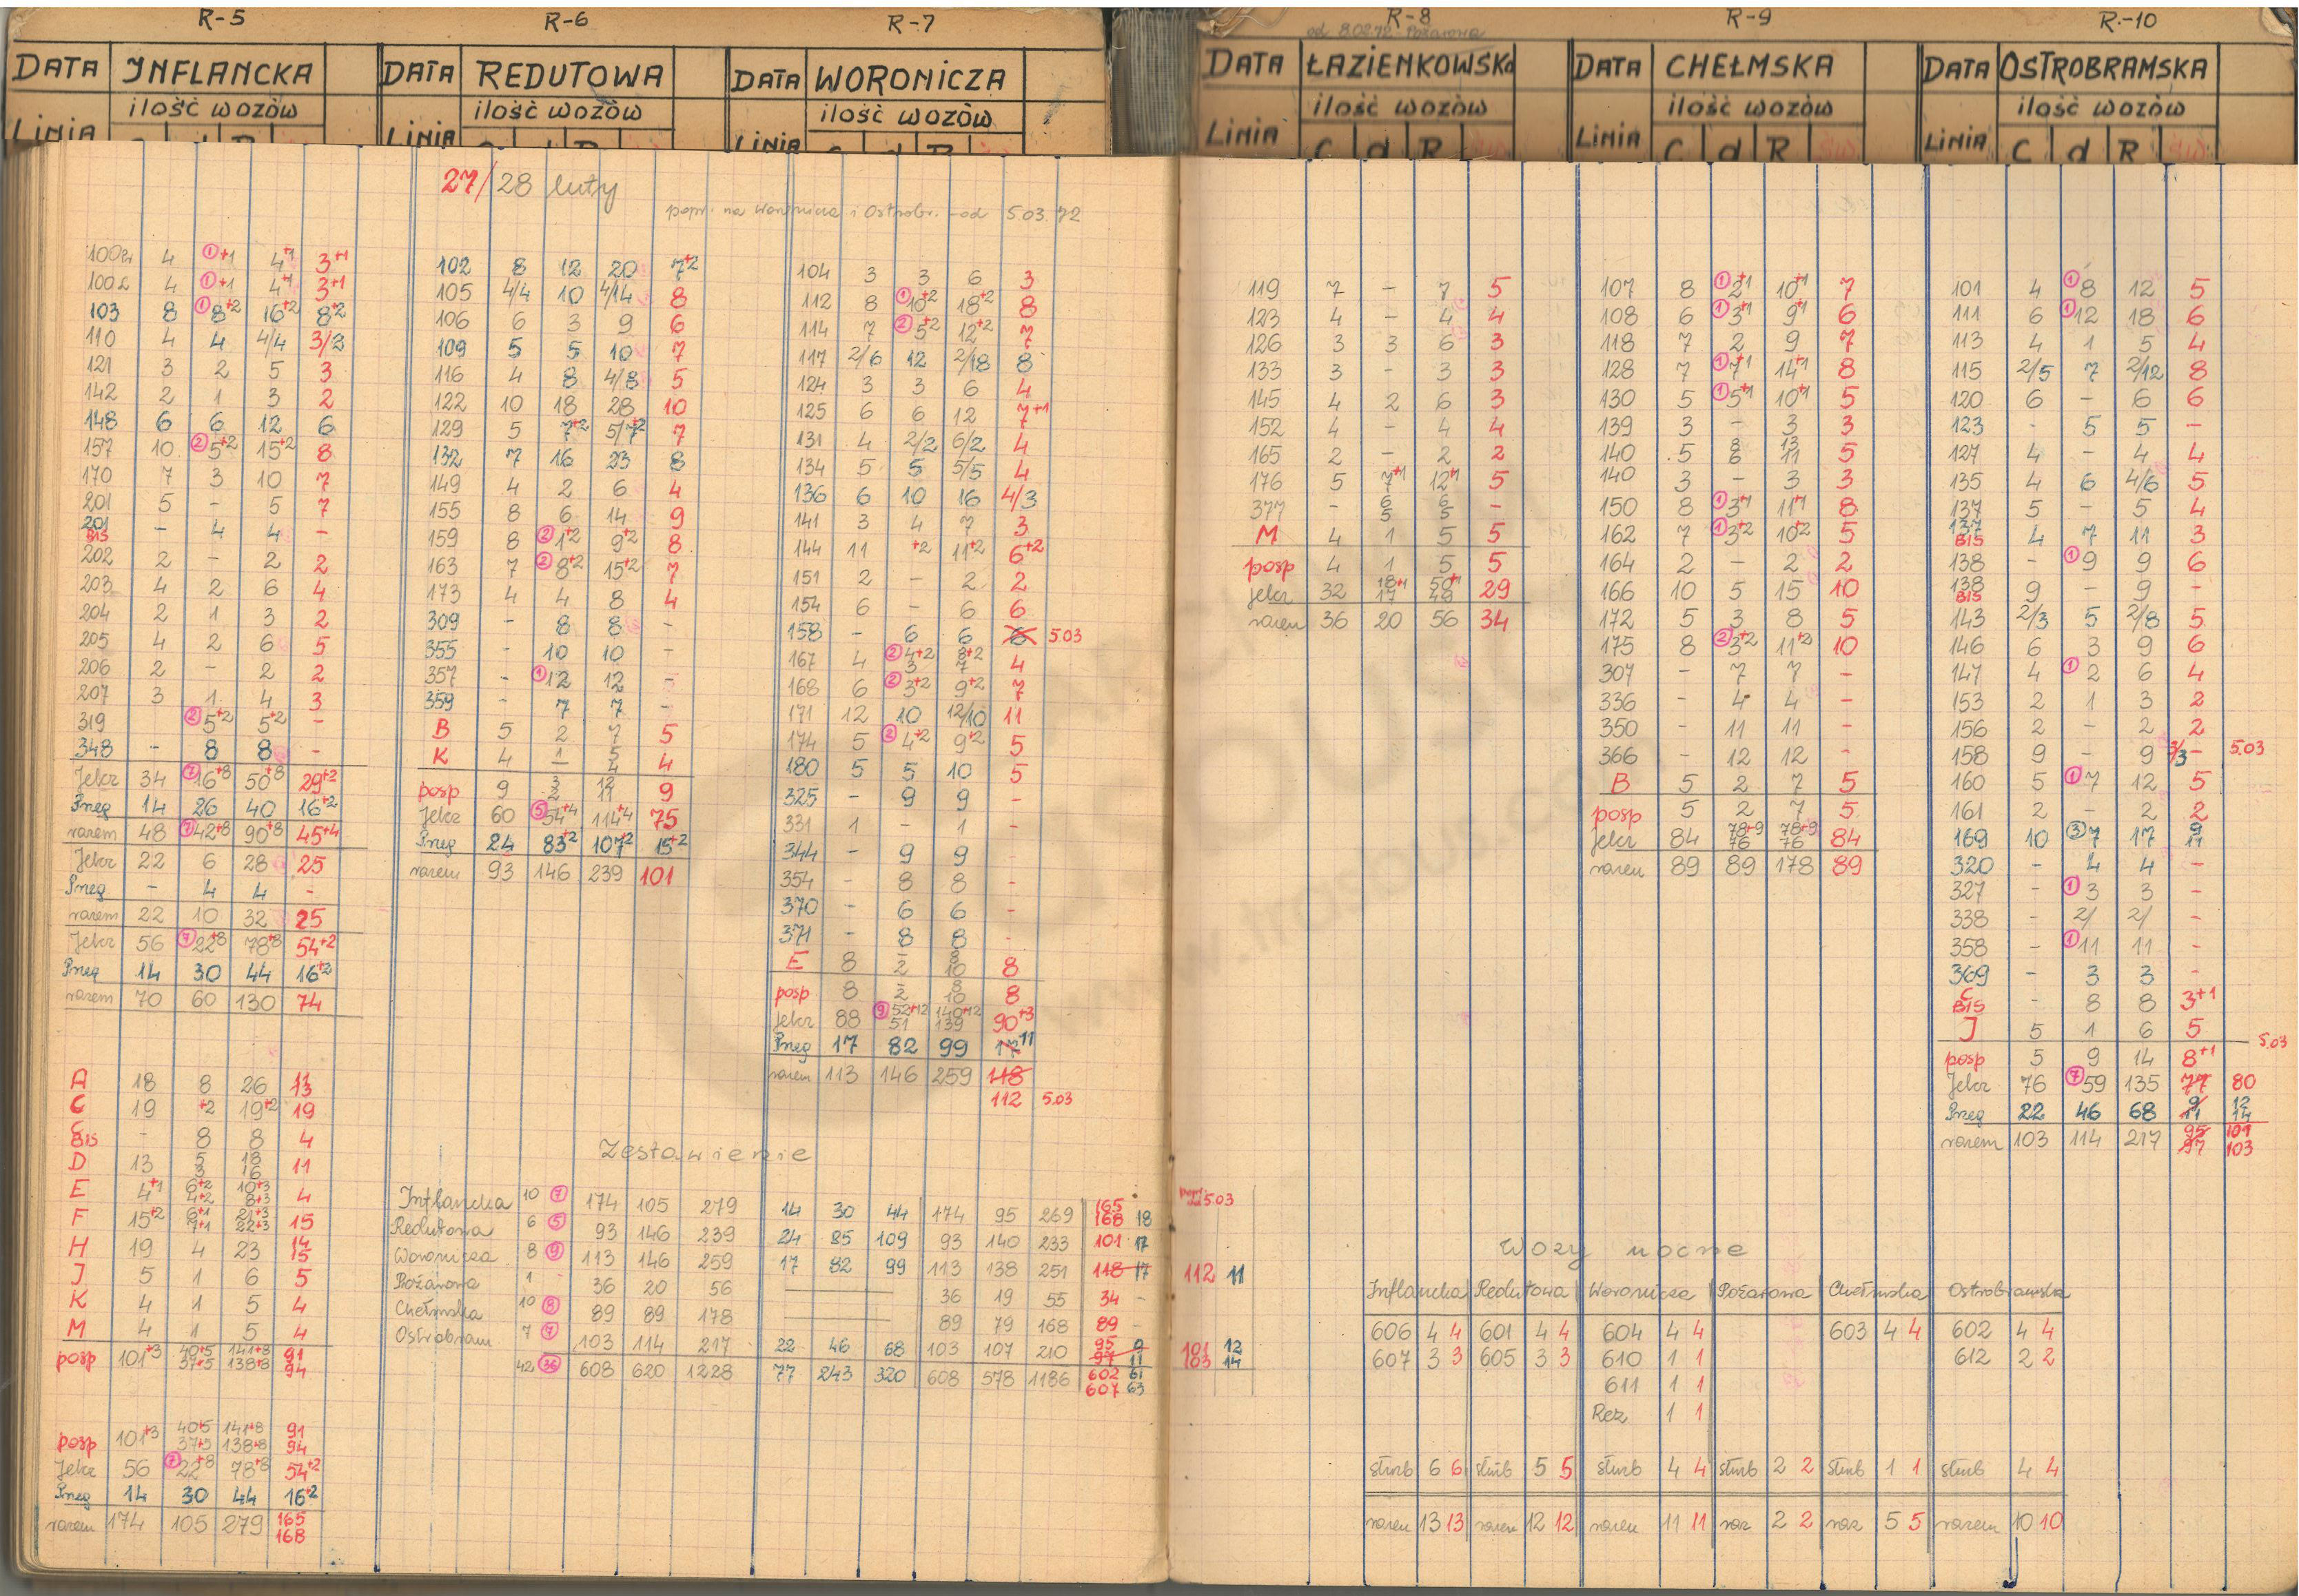 R-5
DATA INFLANCKA
ilość wozów
LINIA
R-6
DATA REDUTOWA
ilość wozów
LINIA
R-7
DATA WORONICZA
ilość wozów
LINIA
R-8
od 8.02.72 Pożarowa
DATA ŁAZIENKOWSKA
ilość wozów
LINIA C d R
R-9
DATA CHEŁMSKA
ilość wozów
LINIA C d R
R-10
DATA OSTROBRAMSKA
ilość wozów
LINIA C d R
27/28 luty
popr. na Woronicza i Ostrobr. od 5.03.72
103 8 ① 8+2 16+2 8+2
110 4 4 4/4 3/3
121 3 2 5 3
142 2 1 3 2
148 6 6 12 6
157 10 ② 5+2 15+2 8
170 7 3 10 7
201 5 - 5 7
201 BIS - 4 4 -
202 2 - 2 2
203 4 2 6 4
204 2 1 3 2
205 4 2 6 5
206 2 - 2 2
207 3 1 4 3
319 ② 5+2 5+2 -
348 - 8 8 -
Jelcz 34 ⑦ 16+8 50+8 29+2
Przeg 14 26 40 16+2
razem 48 ⑦ 42+8 90+8 45+4
Jelcz 22 6 28 25
Przeg - 4 4 -
razem 22 10 32 25
Jelcz 56 ⑦ 22+8 78+8 54+2
Przeg 14 30 44 16+2
razem 70 60 130 74
A 18 8 26 11 13
C 19 +2 19+2 19
C BIS - 8 8 4
D 13 5 3 18 16 11
E 4+1 6+2 4+2 10+3 8+3 4
F 15+2 6+1 7+1 21+3 22+3 15
H 19 4 23 14 15
J 5 1 6 5
K 4 1 5 4
M 4 1 5 4
posp 101+3 40+5 37+5 141+8 138+8 91 94
posp 101+3 40+5 37+5 141+8 138+8 91 94
Jelcz 56 ⑦ 22+8 78+8 54+2
Przeg 14 30 44 16+2
razem 174 105 279 165 168
102 8 12 20 7+2
105 4/4 10 4/14 8
106 6 3 9 6
109 5 5 10 7
116 4 8 4/8 5
122 10 18 28 10
129 5 7+2 5/7+2 7
132 7 16 23 8
149 4 2 6 4
155 8 6 14 9
159 8 ② 1+2 9+2 8
163 7 ② 8+2 15+2 7
173 4 4 8 4
309 - 8 8 -
355 - 10 10 -
357 - ① 12 12 -
359 - 7 7 -
B 5 2 7 5
K 4 1 5 4 4
posp 9 3 2 12 11 9
Jelcz 60 ⑤ 54+4 114+4 75
Przeg 24 83+2 107+2 15+2
razem 93 146 239 101
104 3 3 6 3
112 8 ① 10+2 18+2 8
114 7 ② 5+2 12+2 7
117 2/6 12 2/18 8
124 3 3 6 4
125 6 6 12 7+1
131 4 2/2 6/2 4
134 5 5 5/5 4
136 6 10 16 4/3
141 3 4 7 3
144 11 +2 11+2 6+2
151 2 - 2 2
154 6 - 6 6
158 - 6 6 6 5.03
167 4 ② 4+2 3 8+2 7 4
168 6 ② 3+2 9+2 7
171 12 10 12/10 11
174 5 ② 4+2 9+2 5
180 5 5 10 5
325 - 9 9 -
331 1 - 1 -
344 - 9 9 -
354 - 8 8 -
370 - 6 6 -
371 - 8 8 -
E 8 - 2 8 10 8
posp 8 - 2 8 10 8
Jelcz 88 ⑨ 52+12 51 140+12 139 90+3
Przeg 17 82 99 17 11
razem 113 146 259 118
112 5.03
Zestawienie
Inflancka 10 ⑦ 174 105 279 14 30 44 174 95 269 165 168 18
Redutowa 6 ⑤ 93 146 239 24 85 109 93 140 233 101 17
Woronicza 8 ⑨ 113 146 259 17 82 99 113 138 251 118 17 112 11
Pożarowa 1 - 36 20 56 36 19 55 34 -
Chełmska 10 ⑧ 89 89 178 89 79 168 89 -
Ostrobram 7 ⑦ 103 114 217 22 46 68 103 107 210 95 97 9 11 101 103 12 14
42 ㊱ 608 620 1228 77 243 320 608 578 1186 602 607 61 63
popr. od 5.03
119 7 - 7 5
123 4 - 4 4
126 3 3 6 3
133 3 - 3 3
145 4 2 6 3
152 4 - 4 4
165 2 - 2 2
176 5 7+1 12+1 5
377 - 6 5 6 5 -
M 4 1 5 5
posp 4 1 5 5
Jelcz 32 18+1 17 50+1 49 29
razem 36 20 56 34
107 8 ① 2+1 10+1 7
108 6 ① 3+1 9+1 6
118 7 2 9 7
128 7 ① 7+1 14+1 8
130 5 ① 5+1 10+1 5
139 3 - 3 3
140 5 8 6 13 11 5
140 3 - 3 3
150 8 ① 3+1 11+1 8
162 7 ① 3+2 10+2 5
164 2 - 2 2
166 10 5 15 10
172 5 3 8 5
175 8 ② 3+2 11+2 10
307 - 7 7 -
336 - 4 4 -
350 - 11 11 -
366 - 12 12 -
B 5 2 7 5
posp 5 2 7 5
Jelcz 84 78+9 76 78+9 76 84
razem 89 89 178 89
101 4 ① 8 12 5
111 6 ① 12 18 6
113 4 1 5 4
115 2/5 7 2/12 8
120 6 - 6 6
123 - 5 5 -
127 4 - 4 4
135 4 6 4/6 5
137 5 - 5 4
137 BIS 4 7 11 3
138 - ① 9 9 6
138 BIS 9 - 9 -
143 2/3 5 2/8 5
146 6 3 9 6
147 4 ① 2 6 4
153 2 1 3 2
156 2 - 2 2
158 9 - 9 3/3 - 5.03
160 5 ① 7 12 5
161 2 - 2 2
169 10 ③ 7 17 9 11
320 - 4 4 -
327 - ① 3 3 -
338 - 2/ 2/ -
358 - ① 11 11 -
369 - 3 3 -
C BIS - 8 8 3+1
J 5 1 6 5
5.03
posp 5 9 14 8+1
Jelcz 76 ⑦ 59 135 77 80
Przeg 22 46 68 9 11 12 14
razem 103 114 217 95 97 101 103
Wozy nocne
Inflancka Redutowa Woronicza Pożarowa Chełmska Ostrobramska
606 4 4 601 4 4 604 4 4 603 4 4 602 4 4
607 3 3 605 3 3 610 1 1 612 2 2
611 1 1
Rez 1 1
służb 6 6 służb 5 5 służb 4 4 służb 2 2 służb 1 1 służb 4 4
razem 13 13 razem 12 12 razem 11 11 raz 2 2 raz 5 5 razem 10 10